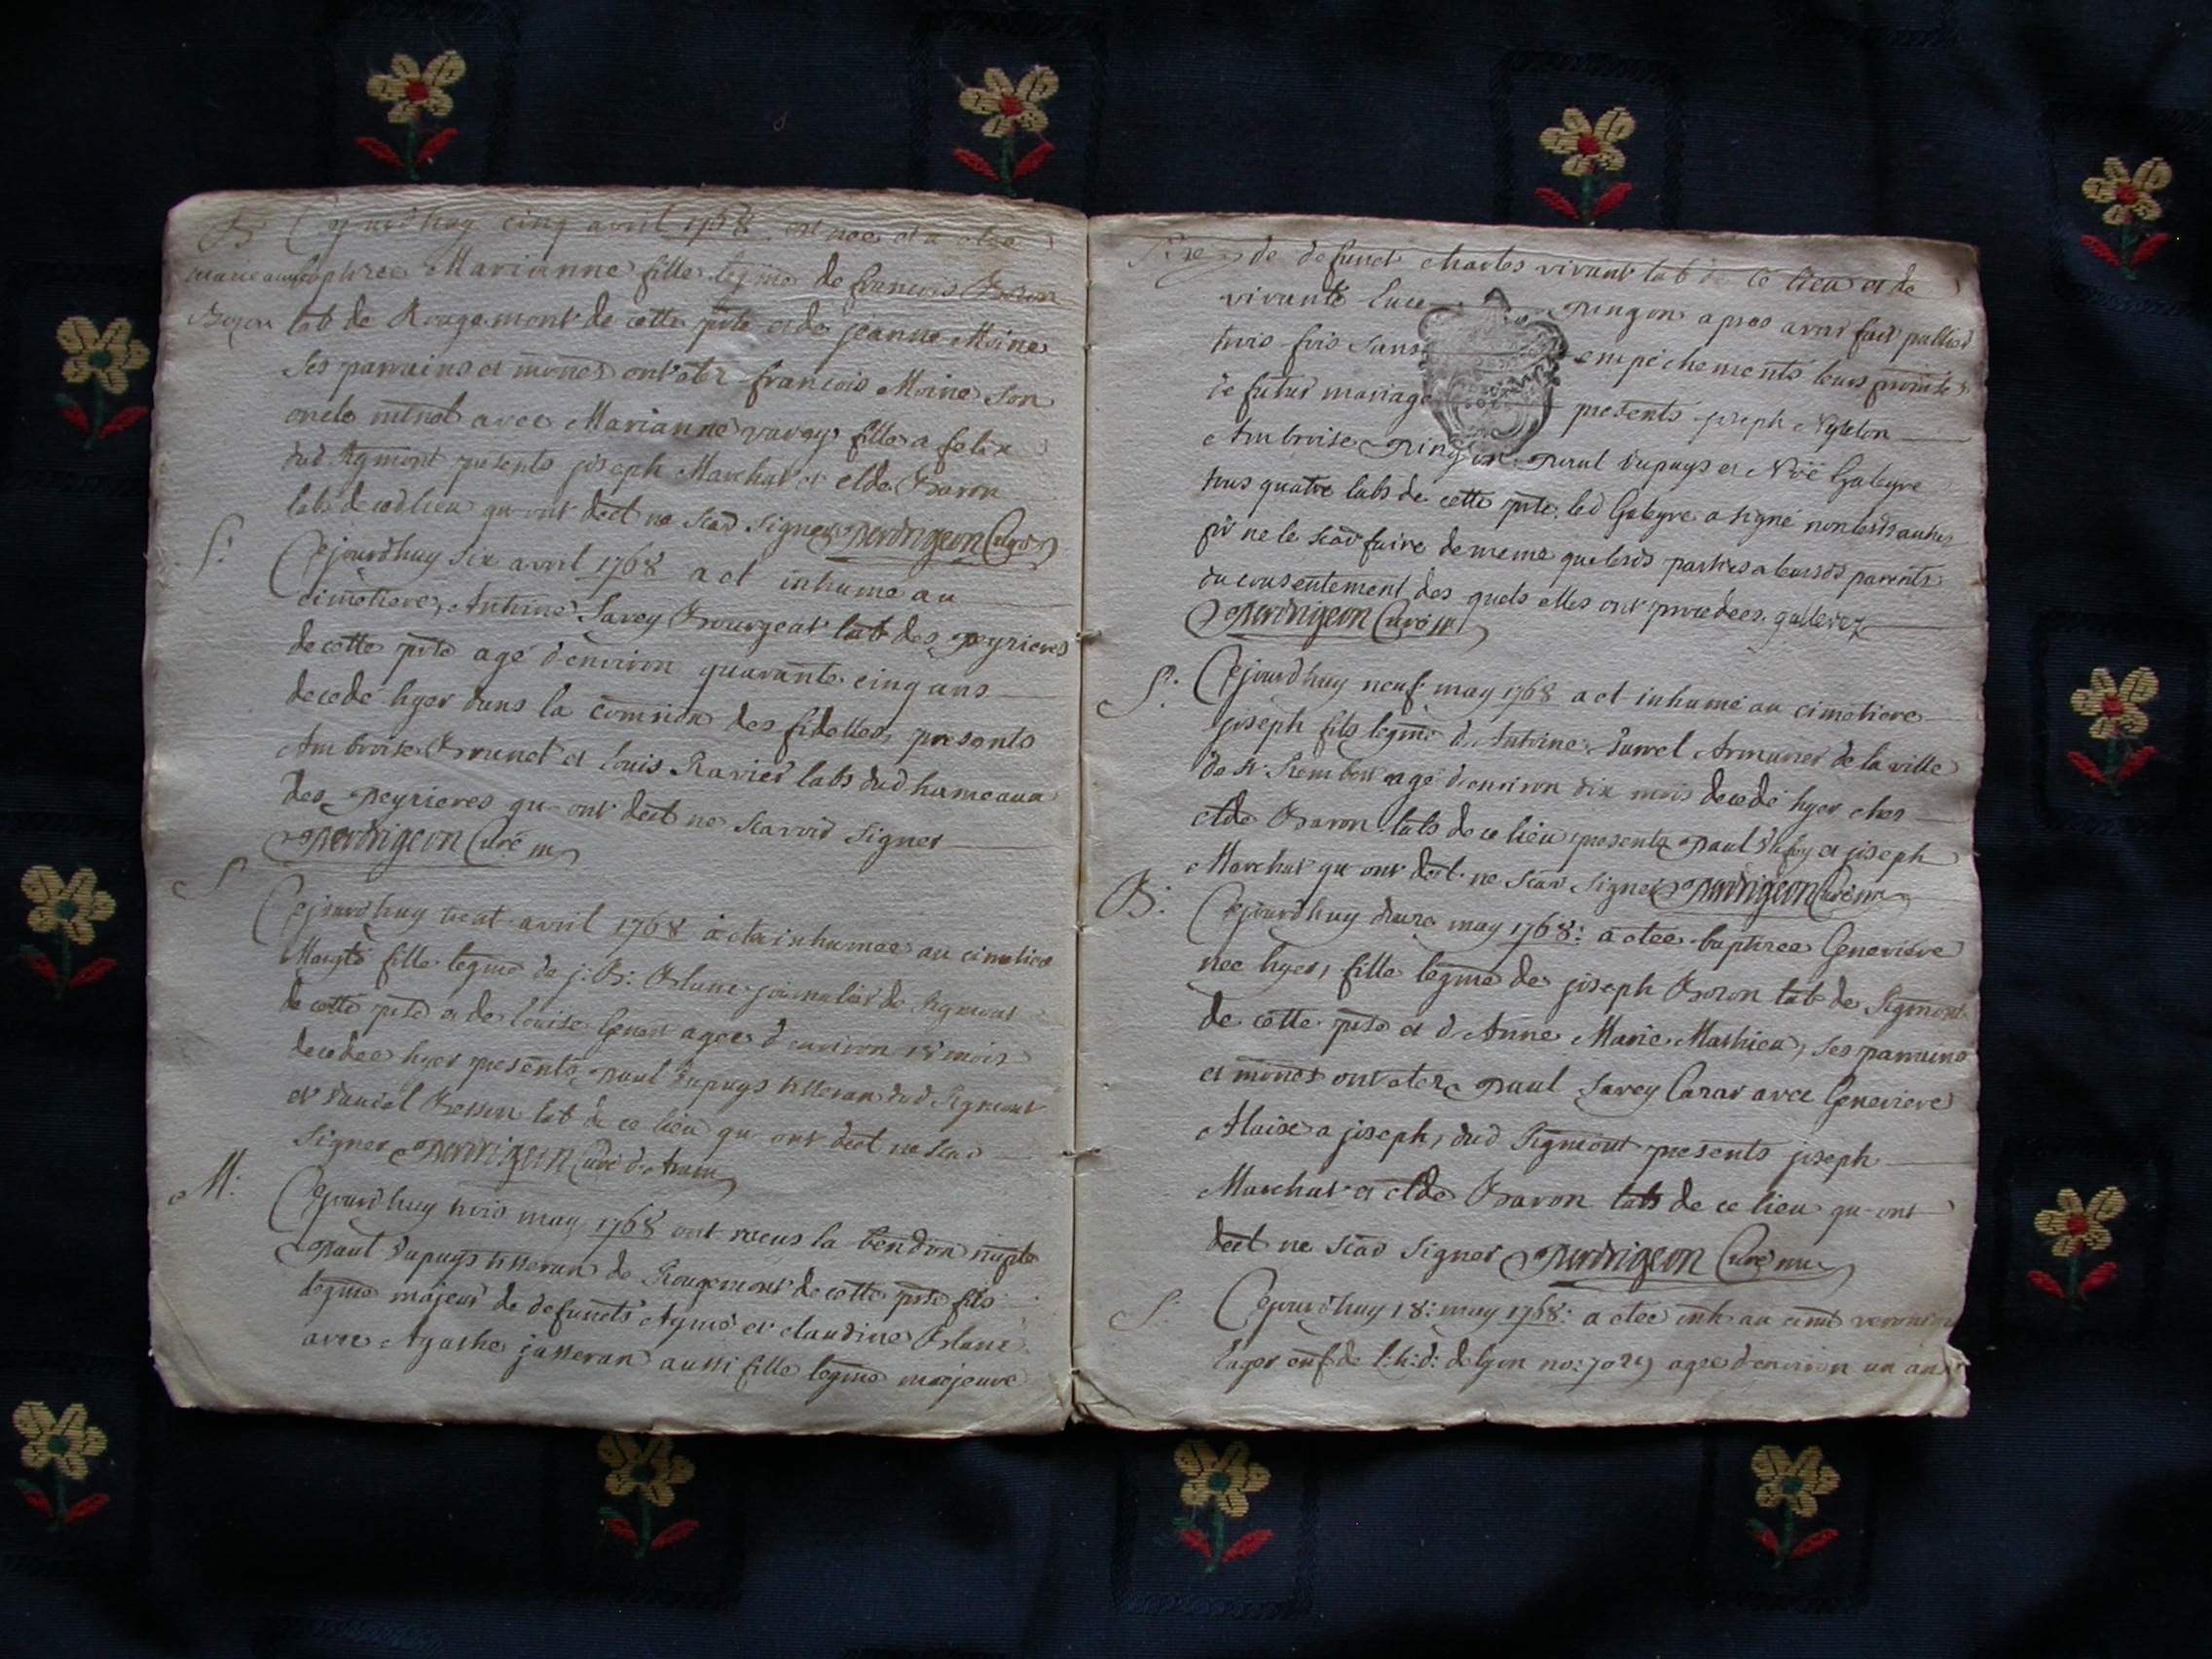 B Cejourdhuy cinq avril 1768 est nee et a etee
baptizee Marianne fille legme de francois Boron
lab de Rougemont de cette psse et de jeanne Moine
Ses parrains et mrnes ont etez francois Moine Son
oncle mtnel avec Marianne vargy fille a felix
dud Rgmont presents joseph Marchat et clde Baron
labs de ced lieu qu ont dect ne scav Signer perdrigeon Curé
S: Cejourdhuy Six avril 1768 a et inhume au
cimetiere Antoine Savey Bourgeat lab des peyrieres
de cette psse agé d'environ quarante cinq ans
decedé hyer dans la comnion des fidelles, presents
Ambroise Brunet et louis Ravier labs dud hameaux
des peyrieres qu ont dect ne scavoir Signer
perdrigeon Curé m
S Cejourdhuy avril 1768 a ete inhumee au cimetiere
Margte fille legme de j: B: Blanc journalier de Rgmont
de cette psse et de louise Genest agee d environ 18 mois
decedee hyer presents paul dupuys tisseran dud Rgmont
et lab de ce lieu qu ont dect ne scav
Signer perdrigeon Curé
M: Cejourdhuy trois may 1768 ont recus la bendon nuple
paul dupuys tisseran de Rougemont de cette psse fils
legme majeur de defuncts Aymé et claudine Blanc
avec Agathe jasseran aussi fille legme majeure
de defunct charles vivant lab de ce lieu et de
vivante pingon apres avoir fait publier
trois fois Sans empechements leurs promsses
de futur mariage presents joseph
Ambroise pingon paul dupuys et Noë Galeyre
tous quatre labs de cette psse led Galeyre a signé non lesds autres
pr ne le scav faire de meme que lesds parties a leursds parents
du consentement des quels elles ont procedees. galleyez
perdrigeon Curé m
S: Cejourdhuy neuf may 1768 a et inhumé au cimetiere
joseph fils legme d Antoine Armurier de la ville
de St Rembert agé d'environ dix mois decedé hyer ches
clde Baron labs de ce lieu presents paul et joseph
Marchat qu ont dect ne scav Signer perdrigeon Curé m
B: Cejourdhuy may 1768: a etee baptizee Genevieve
nee hyer, fille legme de joseph Boron lab de Rgmont
de cette psse et d Anne Marie Mathieu, Ses parrains
et mrnes ont etez paul Savey Carar avec Genevieve
Alaise a joseph, dud Rgmont presents joseph
Marchat et clde Baron labs de ce lieu qu ont
dect ne scav Signer perdrigeon Curé m
S: Cejourdhuy 18: may 1768: a etee inh au cimt
enf de l: h: d: de lyon no: agee d'environ un an